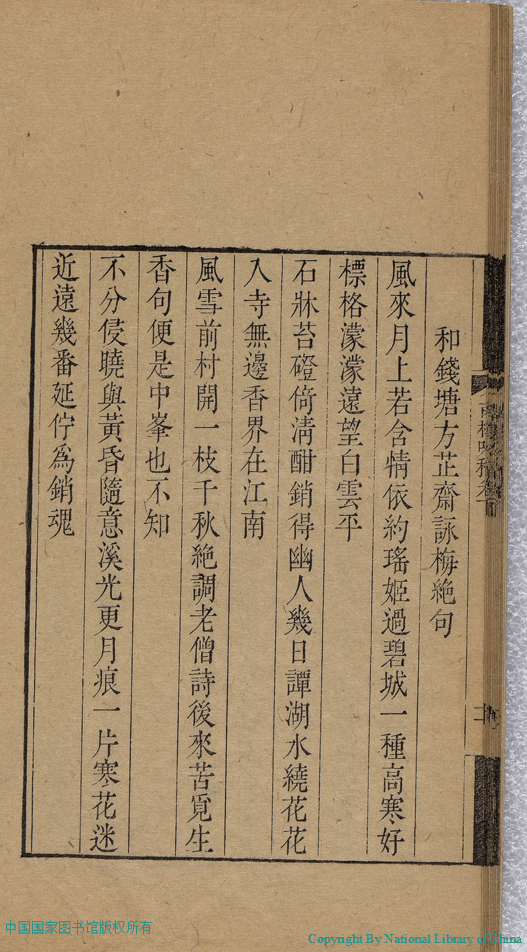 和錢塘方芷齋詠梅絶句
風來月上若含情依約瑤姬過碧城一種高寒好
標格濛濛遠望白雲平
石牀苔磴倚淸酣銷得幽人幾日譚湖水繞花花
入寺無邊香界在江南
風雪前村開一枝千秋絶調老僧詩後來苦覓生
香句便是中峯也不知
不分侵曉與黃昏隨意溪光更月痕一片寒花迷
近遠幾番延佇爲銷魂
中国国家图书馆版权所有
Copyright By National Library of China